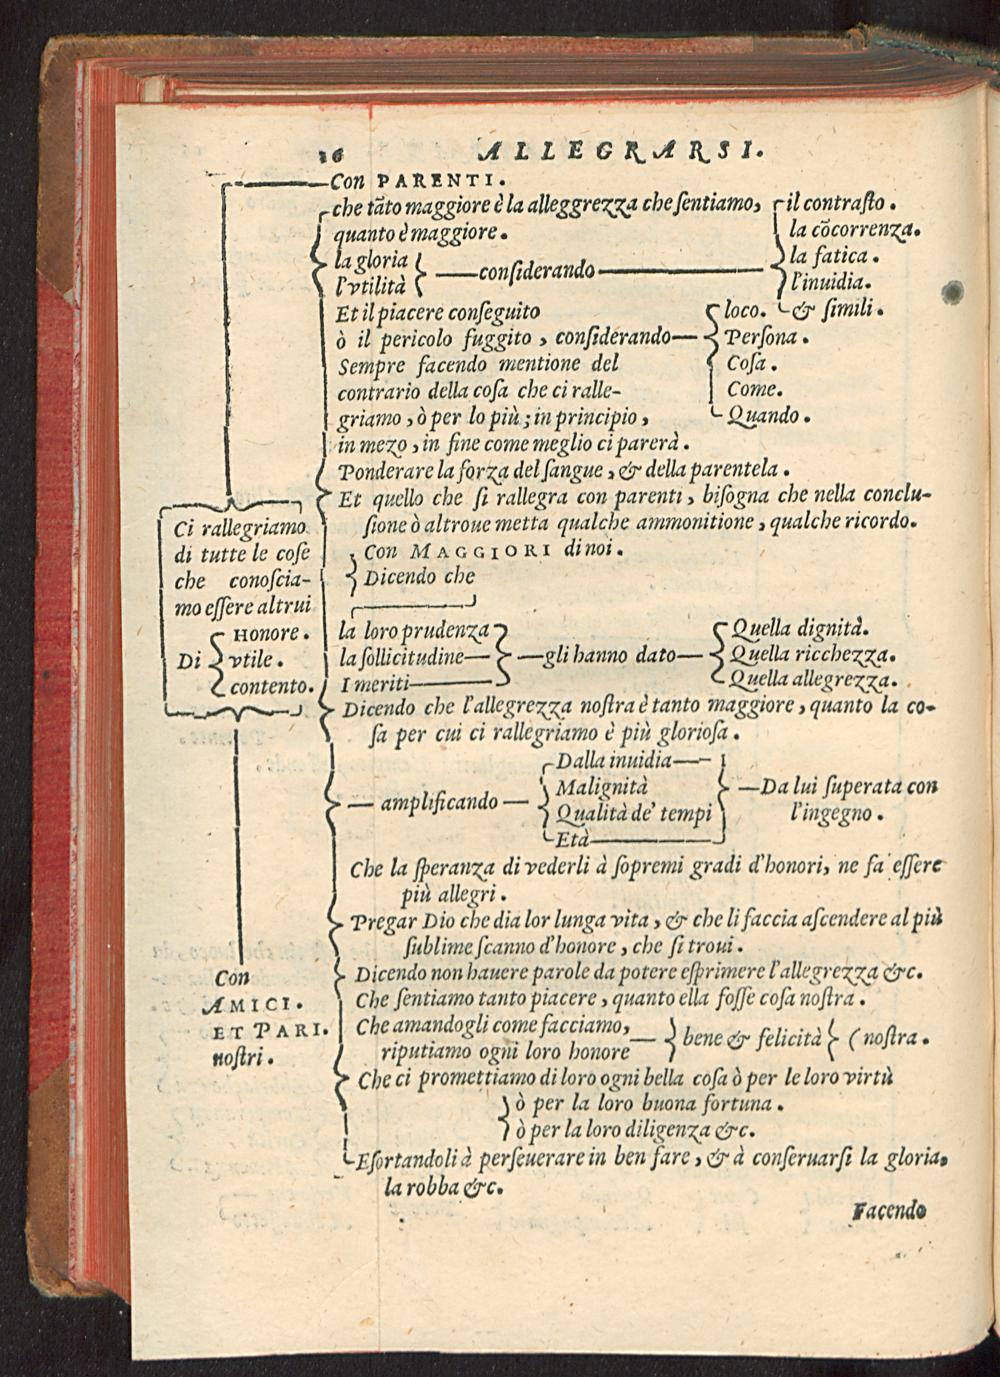 26 ALLEGRARSI.
Con PARENTI.
che tãto maggiore è la alleggrezza che ſentiamo,
quanto è maggiore.
la gloria
l'vtilità
conſiderando
il contraſto.
la cõcorrenza.
la fatica.
l'inuidia.
& ſimili.
Et il piacere conſeguito
ò il pericolo fuggito, conſiderando
loco.
Perſona.
Coſa.
Come.
Quando.
Sempre facendo mentione del
contrario della coſa che ci ralle-
griamo, ò per lo più; in principio,
in mezo, in fine come meglio ci parerà.
Ponderare la forza del ſangue, & della parentela.
Et quello che ſi rallegra con parenti, biſogna che nella conclu-
ſione ò altroue metta qualche ammonitione, qualche ricordo.
Ci rallegriamo
di tutte le coſe
che conoſcia-
mo eſſere altrui
Di
HONORE.
vtile.
contento.
Con MAGGIORI di noi.
Dicendo che
la loro prudenza
la ſollicitudine
I meriti
gli hanno dato
Quella dignità.
Quella ricchezza.
Quella allegrezza.
Dicendo che l'allegrezza noſtra è tanto maggiore, quanto la co-
ſa per cui ci rallegriamo è più glorioſa.
amplificando
Dalla inuidia
Malignità
Qualità de' tempi
Età
Da lui ſuperata con
l'ingegno.
Che la ſperanza di vederli à ſopremi gradi d'honori, ne fa eſſere
più allegri.
Pregar Dio che dia lor lunga vita, & che li faccia aſcendere al più
ſublime ſcanno d'honore, che ſi troui.
Con
AMICI.
ET PARI.
noſtri.
Dicendo non hauere parole da potere eſprimere l'allegrezza &c.
Che ſentiamo tanto piacere, quanto ella foſſe coſa noſtra.
Che amandogli come facciamo,
riputiamo ogni loro honore
bene & felicità
(noſtra.
Che ci promettiamo di loro ogni bella coſa ò per le loro virtù
ò per la loro buona fortuna.
ò per la loro diligenza &c.
Eſortandoli à perſeuerare in ben fare, & à conſeruarſi la gloria,
la robba &c.
Facendo